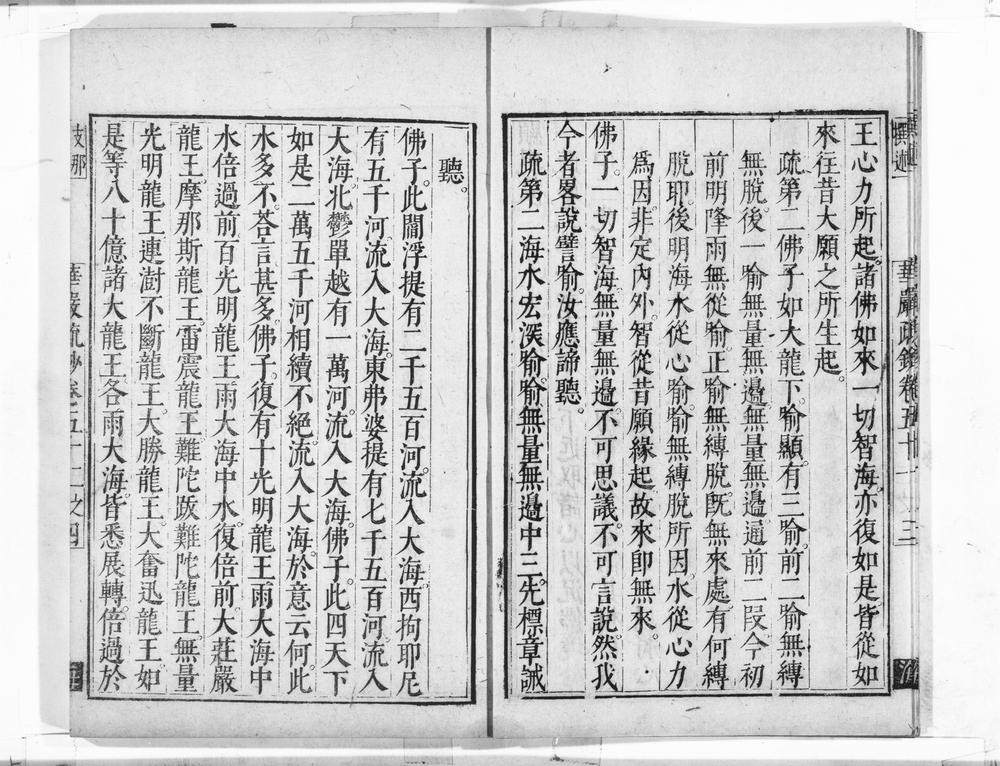 王心力所起。諸佛如來一切智海。亦復如是。皆從如
來往昔大願之所生起。
疏第二佛子如大龍下。喻顯。有三喻。前二喻無縛
無脫。後一喻無量無邊。無量無邊通前二段。今初
前明降雨無從喻。正喻無縛脫。旣無來處。有何縛
脫耶。後明海水從心喻。喻無縛脫所因。水從心力
爲因。非定內外。智從昔願緣起。故來卽無來。
佛子。一切智海。無量無邊。不可思議。不可言說。然我
今者畧說譬喻。汝應諦聽。
疏第二海水宏深喻。喻無量無邊。中三。先標章誡
聽。
佛子。此閻浮提有二千五百河。流入大海。西拘耶尼
有五千河。流入大海。東弗婆提有七千五百河。流入
大海。北鬱單越有一萬河。流入大海。佛子。此四天下
如是二萬五千河。相續不絕。流入大海。於意云何。此
水多不。荅言甚多。佛子。復有十光明龍王。雨大海中
水倍過前。百光明龍王。雨大海中水。復倍前。大莊嚴
龍王。摩那斯龍王。雷震龍王。難陀跋難陀龍王。無量
光明龍王。連澍不斷龍王。大勝龍王。大奮迅龍王。如
是等八十億諸大龍王。各雨大海。皆悉展轉。倍過於
華嚴疏鈔卷五十二之三
華嚴疏鈔卷五十二之四